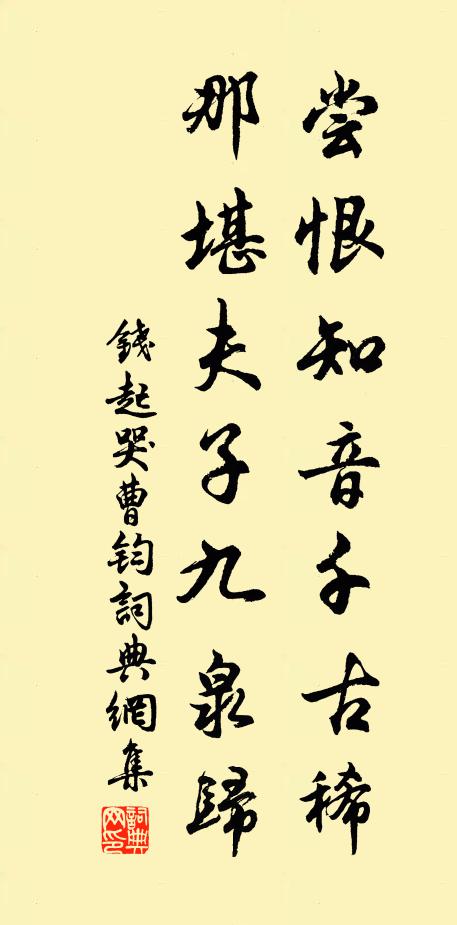 尝恨知音千古稀
那堪夫子九泉歸
錢起哭曹鈞詞典網集
詞典网印